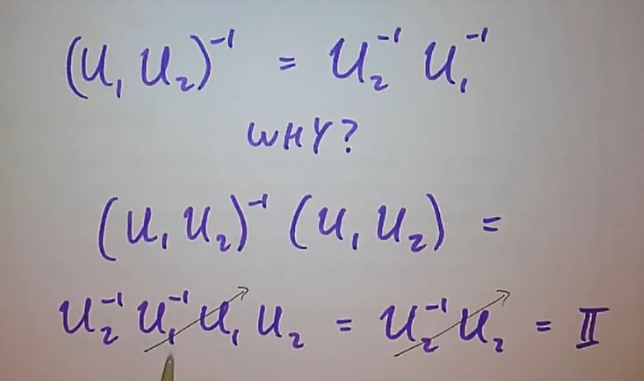 (U₁ U₂)⁻¹ = U₂⁻¹ U₁⁻¹
WHY?
(U₁ U₂)⁻¹ (U₁ U₂) =
U₂⁻¹ U₁⁻¹ U₁ U₂ = U₂⁻¹ U₂ = 𝕀